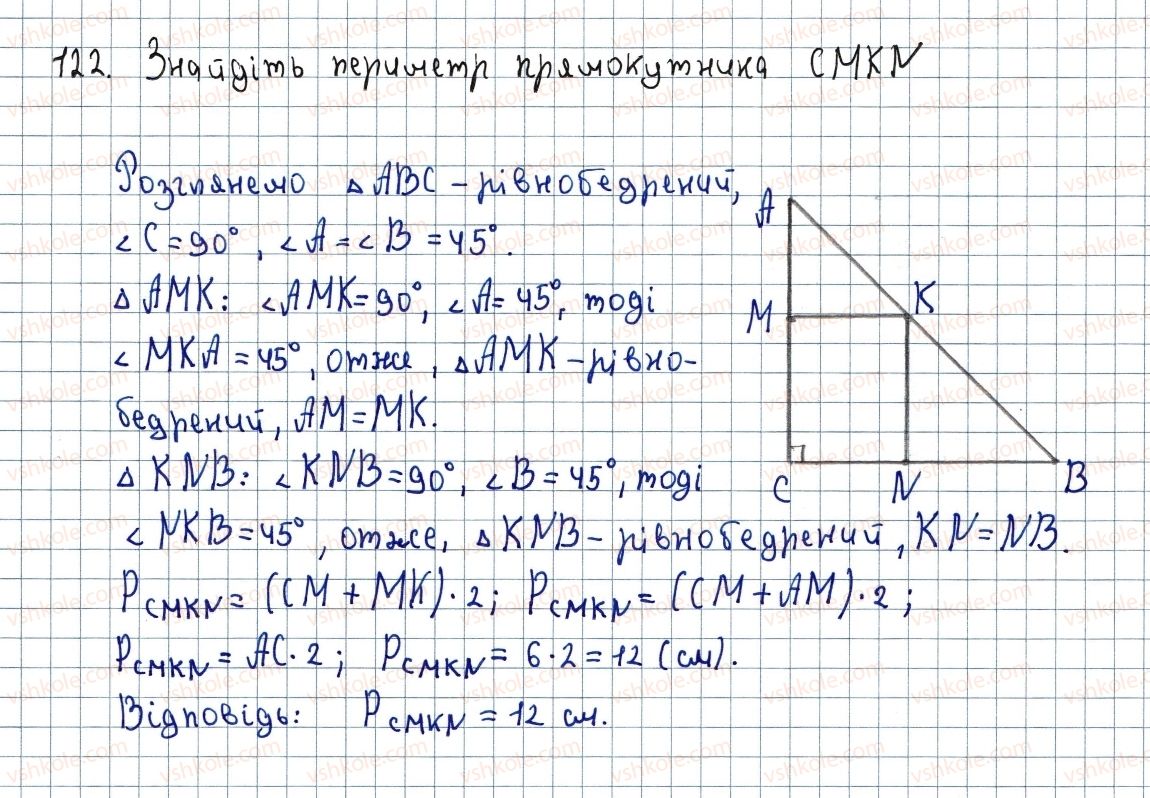 122. Знайдіть периметр прямокутника CMKN
Розглянемо △ABC – рівнобедрений,
∠C = 90°, ∠A = ∠B = 45°.
△AMK: ∠AMK = 90°, ∠A = 45°, тоді
∠MKA = 45°, отже, △AMK – рівно-
бедрений, AM = MK.
△KNB: ∠KNB = 90°, ∠B = 45°, тоді
∠NKB = 45°, отже, △KNB – рівнобедрений, KN = NB.
P_CMKN = (CM + MK) · 2; P_CMKN = (CM + AM) · 2;
P_CMKN = AC · 2; P_CMKN = 6 · 2 = 12 (см).
Відповідь: P_CMKN = 12 см.
A
M
K
C
N
B
vshkole.com